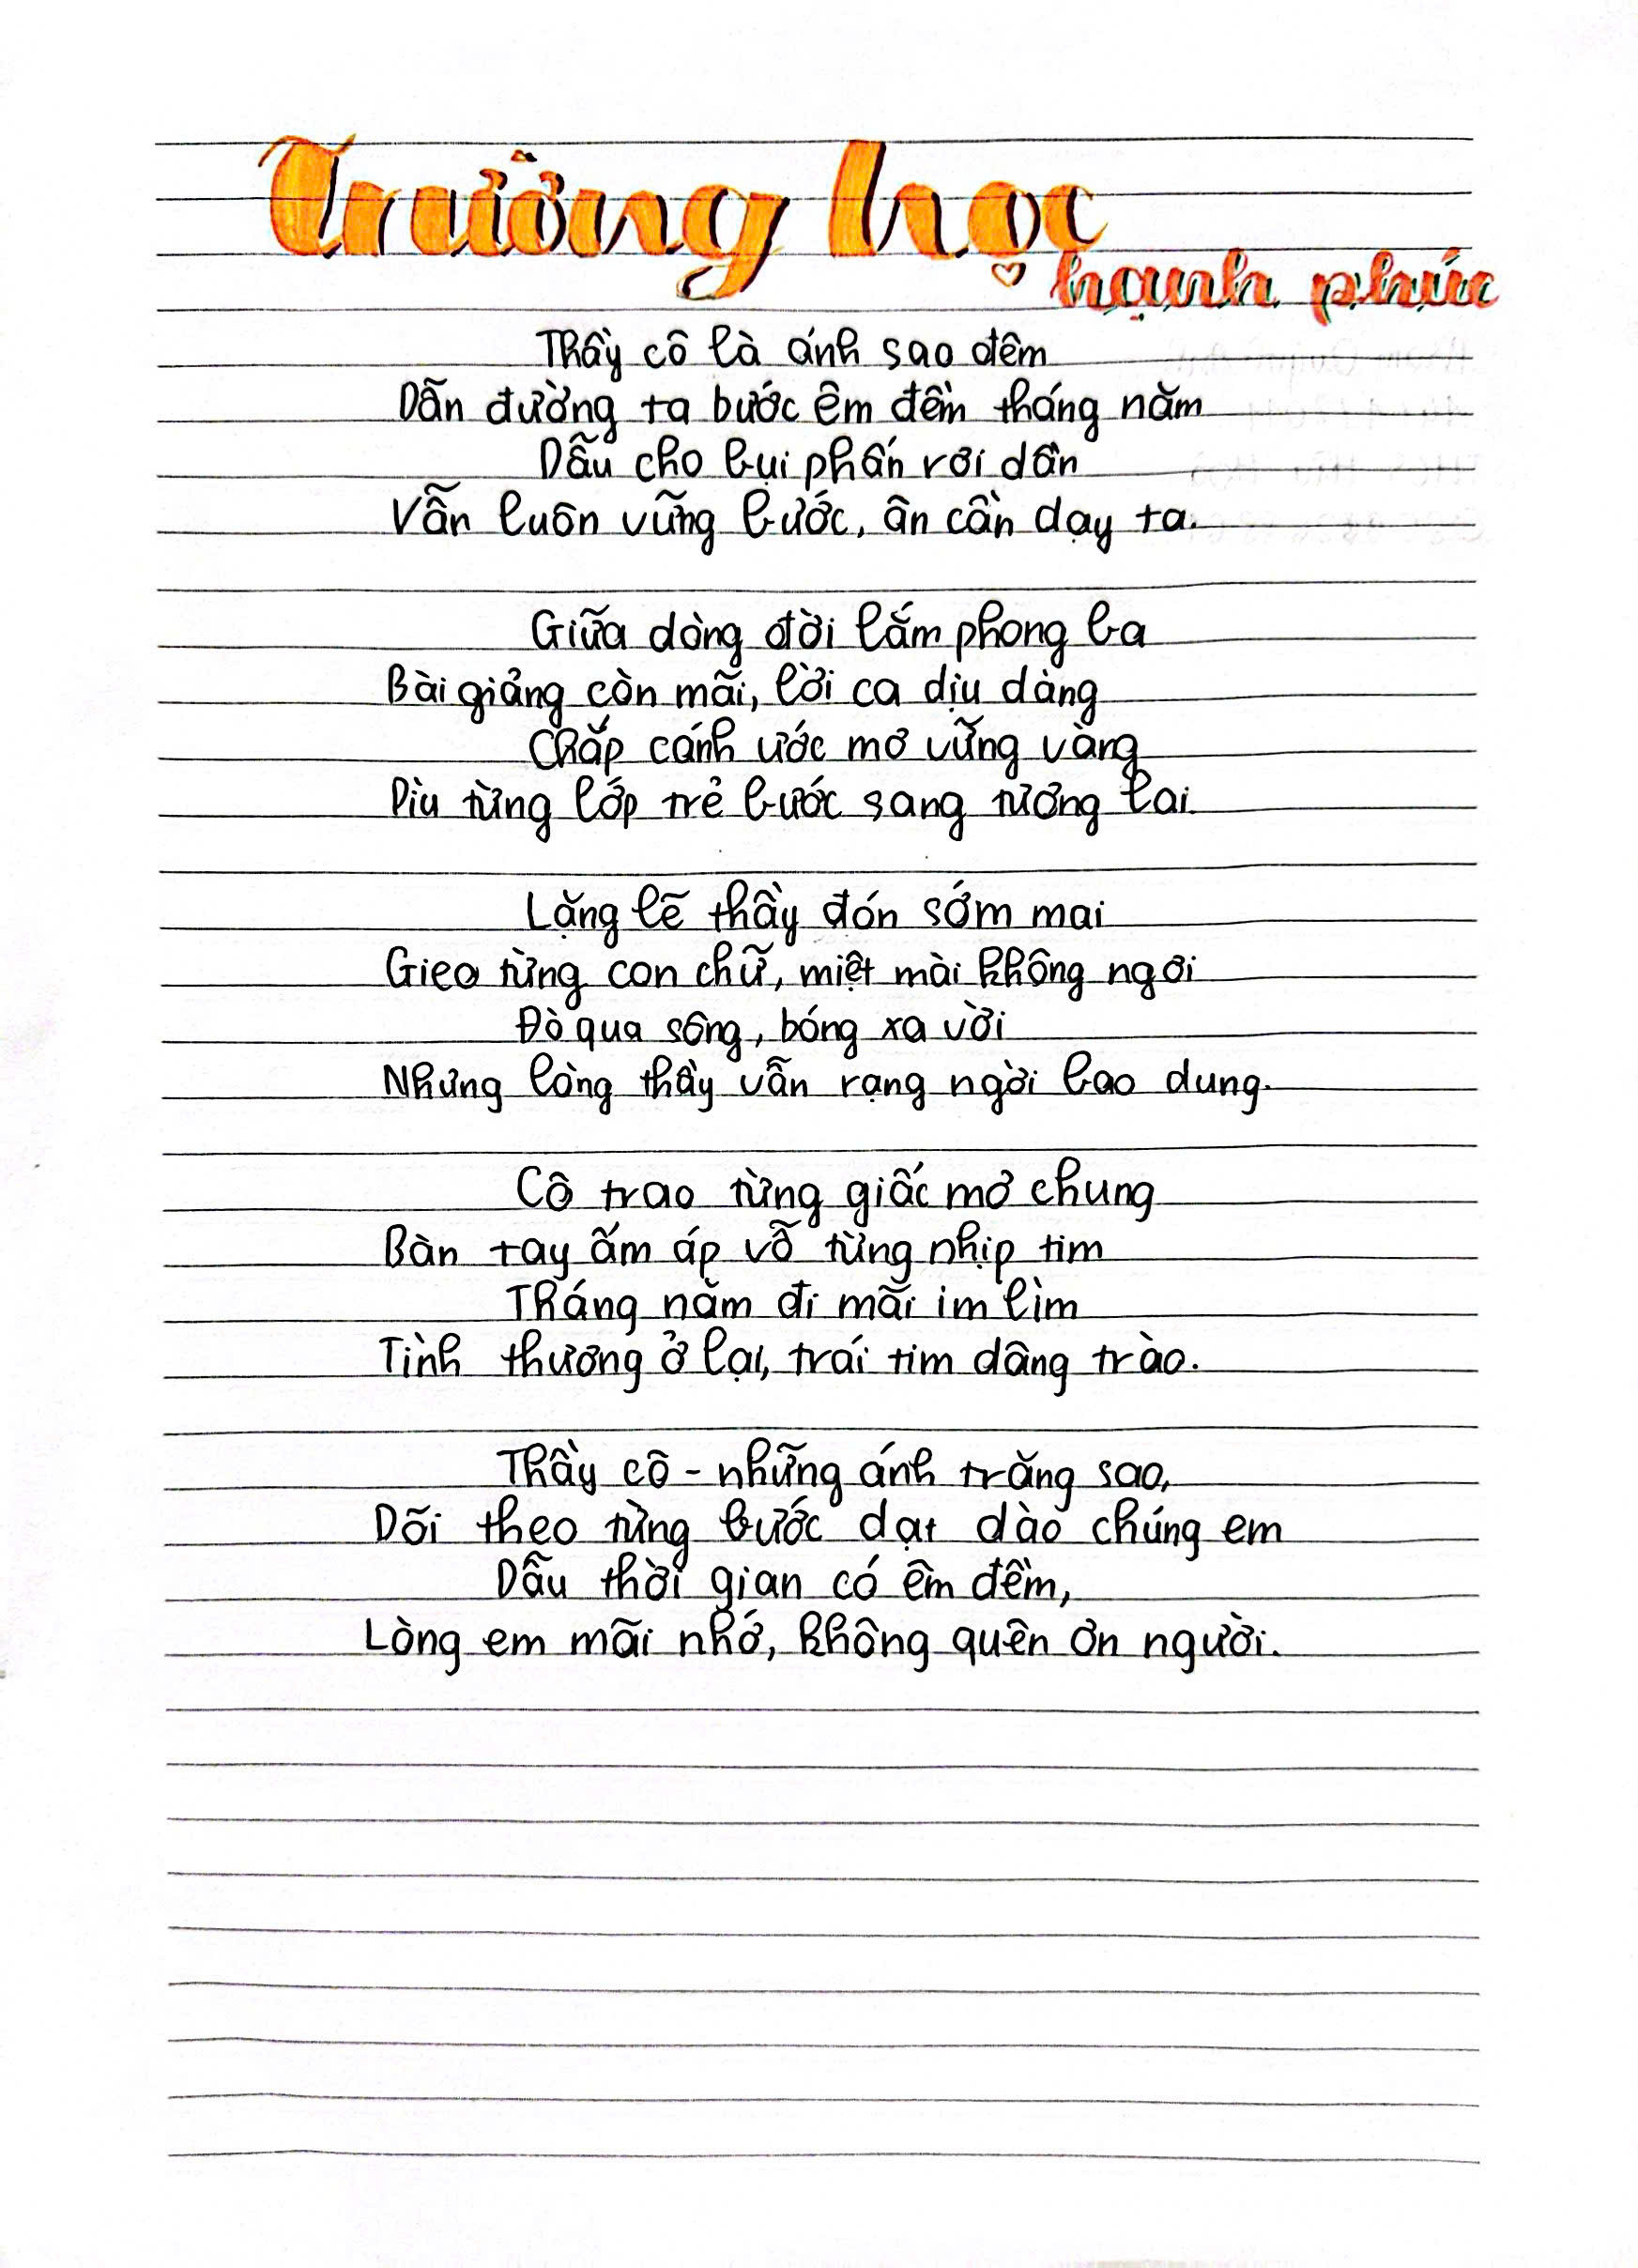 Trường học
hạnh phúc
Thầy cô là ánh sao đêm
Dẫn đường ta bước êm đềm tháng năm
Dẫu cho bụi phấn rơi dần
Vẫn luôn vững bước, ân cần dạy ta.
Giữa dòng đời lắm phong ba
Bài giảng còn mãi, lời ca dịu dàng
Chắp cánh ước mơ vững vàng
Dìu từng lớp trẻ bước sang tương lai.
Lặng lẽ thầy đón sớm mai
Gieo từng con chữ, miệt mài không ngơi
Đò qua sông, bóng xa vời
Nhưng lòng thầy vẫn rạng ngời bao dung.
Cô trao từng giấc mơ chung
Bàn tay ấm áp vỗ từng nhịp tim
Tháng năm đi mãi im lìm
Tình thương ở lại, trái tim dâng trào.
Thầy cô - những ánh trăng sao,
Dõi theo từng bước dạt dào chúng em
Dẫu thời gian có êm đềm,
Lòng em mãi nhớ, không quên ơn người.